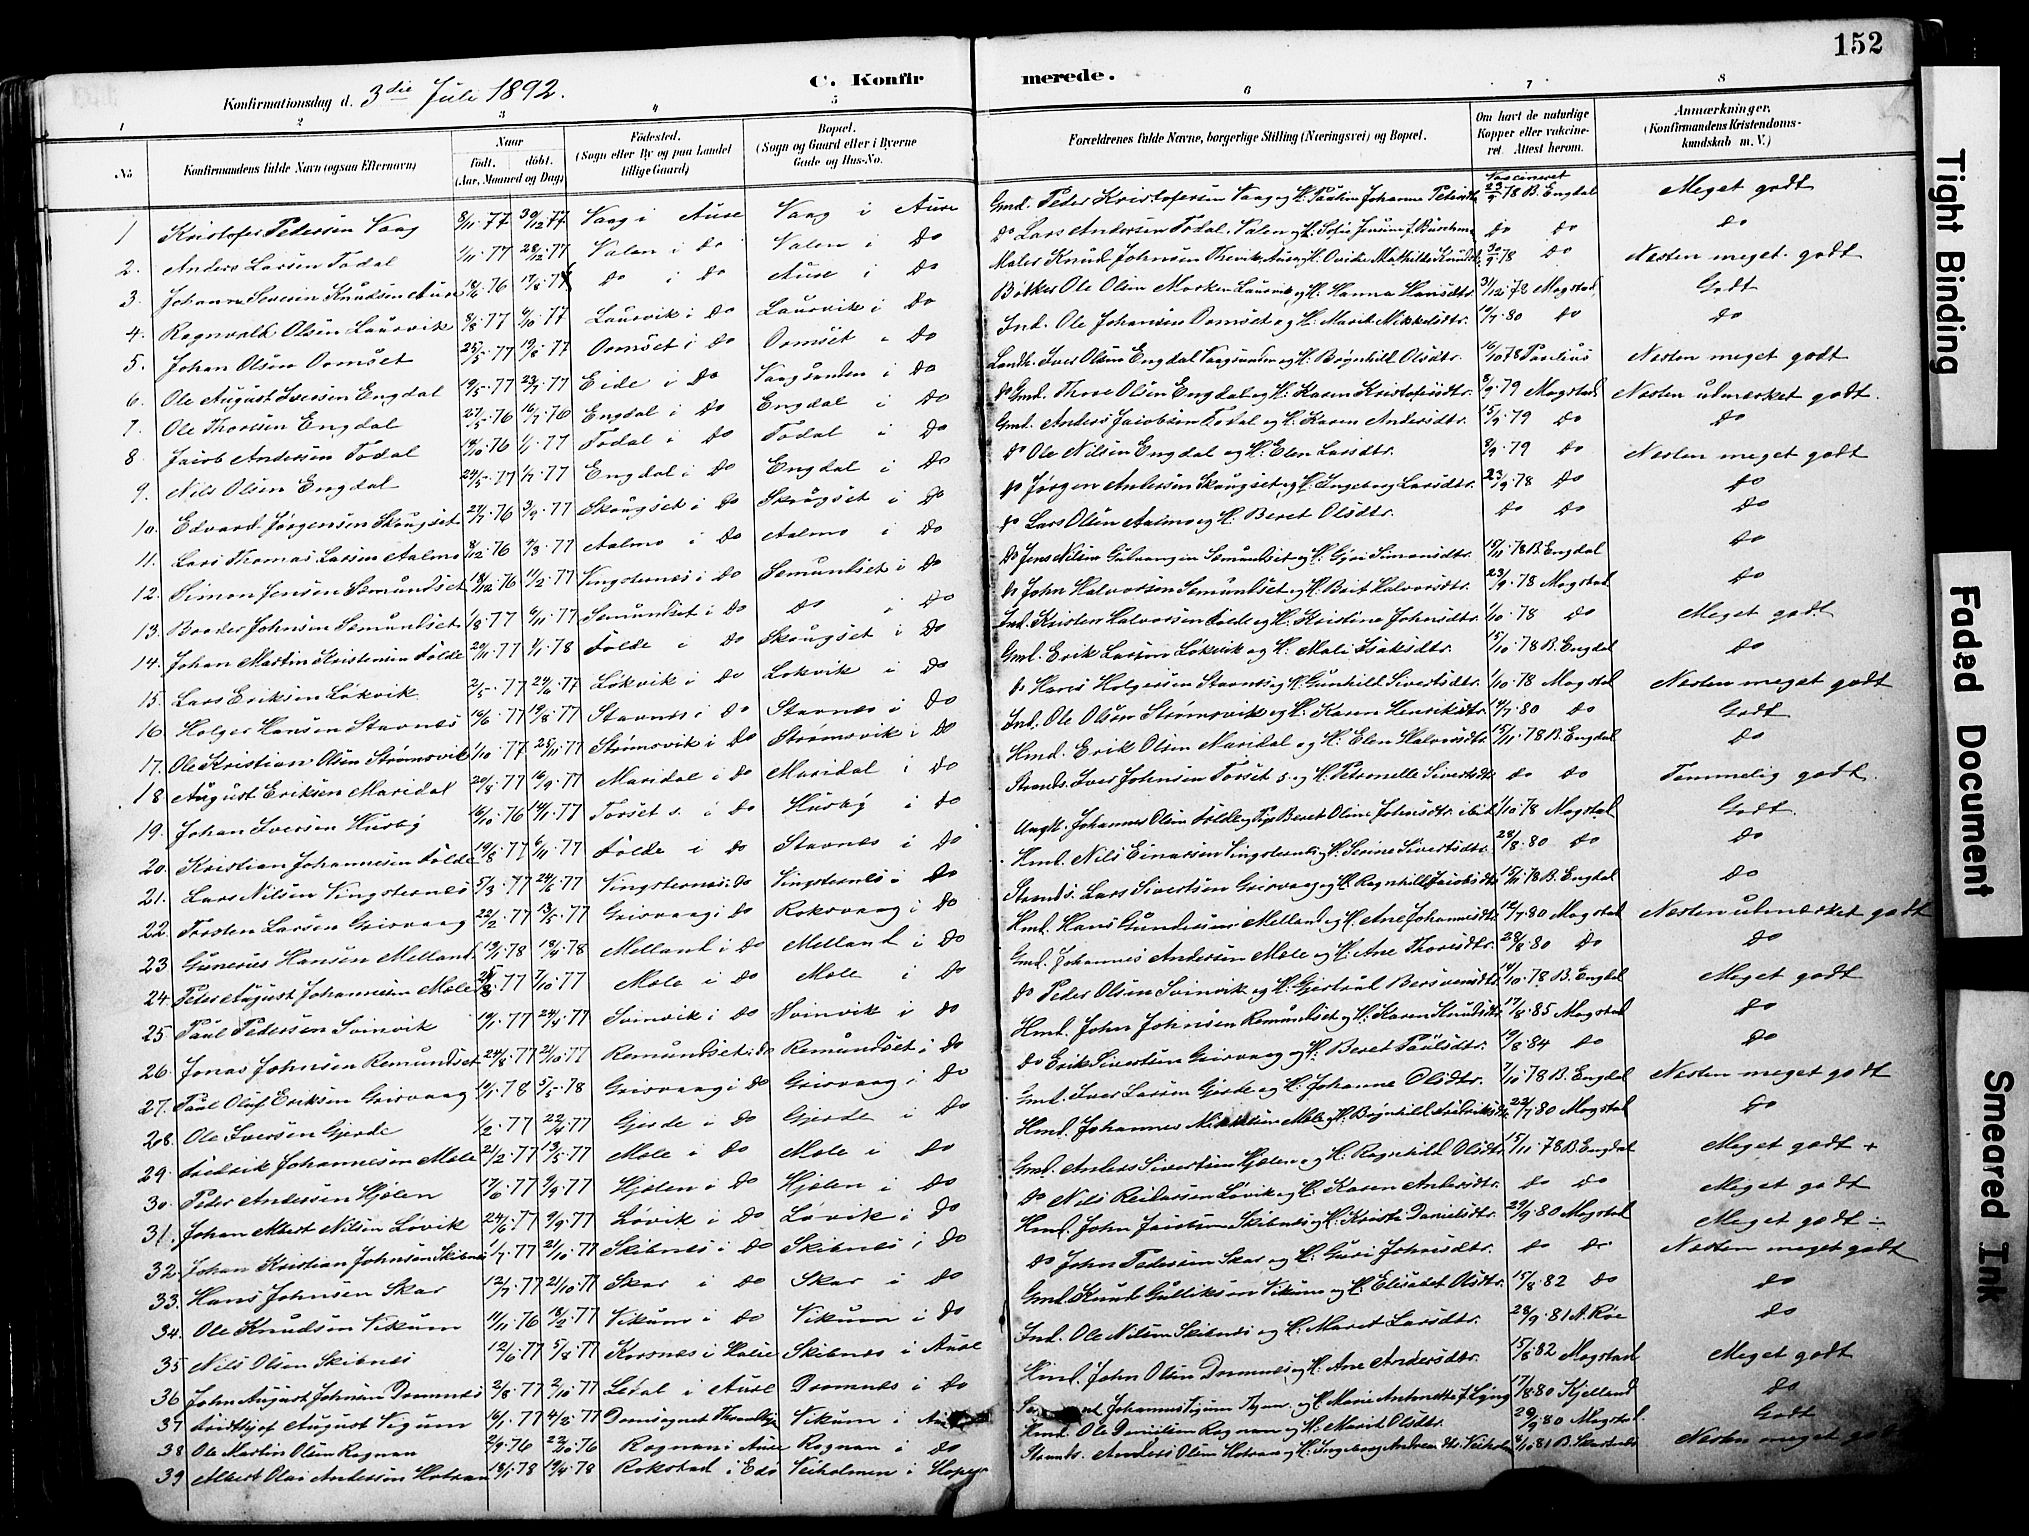 152
C. Konfirmerede.
Konfirmationsdag d. 3die Juli 1892.
1 2 3 4 5 6 7 8
No
Konfirmandens fulde Navn (ogsaa Efternavn)
Naar født. døbt. (Aar, Maaned og Dag)
Fødested. (Sogn eller By og paa Landet tillige Gaard)
Bopæl. (Sogn og Gaard eller i Byerne Gade og Hus-No.
Forældrenes fulde Navne, borgerlige Stilling (Næringsvei) og Bopæl.
Om havt de naturlige Kopper eller vakcineret. Attest herom.
Anmærkninger. (Konfirmandens Kristendomskundskab m. V.)
Vaccineret
1 Kristofer Pedersen Vaag 8/11 77 30/12 77 Vaag i Aure Vaag i Aure Gmd. Peder Kristofersen Vaag og H. Pauline Johanna Petersdtr. 23/9 78 B. Engdal Meget godt
2. Anders Larsen Todal 1/11 77 28/12 77 Valen i Do Valen i Do Do Lars Andersen Todal, Valen og H. Do Do Do
3. Johann Severin Knudsen Aure 18/6 76 do i Do Aure i Do Maler Knud Johnsen 30/9 78 Do Nesten meget godt
4. Ragnvald Olsen Laurvik 8/8 77 9/10 77 Laurvik i Do Laurvik i Do Bøtker Ole Olsen og H. Hanna Hansdtr. 31/12 78 Mogstad Godt
5. Johan Olsen Oomset 25/5 77 19/8 77 Oomset i Do Oomset i Do Ind. Ole Johansen Oomset og H. Marit Mikkelsdtr. 14/7 80 do do
6. Ole August Iversen Engdal 19/5 77 Eide i Do Vaagsanden i Do Landh. Iver Olsen Engdal Vaagsanden og H. Brynhild Olsdtr. 16/10 78 Paulius Nesten meget godt
7. Ole Thoresen Engdal 27/5 76 16/7 76 Engdal i Do Engdal i Do Do Gmd. Thore Olsen Engdal og H. Karen Kristofersdtr. 8/9 79 Mogstad Nesten udmerket godt.
8. Jacob Andersen Todal 19/10 76 1/1 77 Todal i Do Todal i Do Gmd. Anders Jacobsen Todal og H. Karen Andersdtr. 15/9 79 do Do
9. Nils Olsen Engdal 24/5 77 1/7 77 Engdal i Do Engdal i Do Do Ole Nilsen Engdal og H. Elen Larsdtr. 8/9 79 do Nesten meget godt
10. Edvard Jørgensen Skougset 27/7 76 3/9 77 Skougset i Do Skrugset i Do Do Jørgen Andersen Skougset og H. Ingeborg Larsdtr. 23/9 78 do Do
11. Lars Thomas Larsen Aalmo 8/12 76 4/3 77 Aalmo i Do Aalmo i Do do Lars Olsen Aalmo og H. Beret Olsdtr. Do Do Do
12. Simon Jensen Semundset 18/12 76 11/2 77 Vingsternes i Do Semundset i Do Do Jens Nilsen Semundset og H. Gjøri Simonsdtr. 15/11 78 B. Engdal Do
13. Baarder Johnsen Semundset 1/8 77 6/11 77 Semundset i Do Do i Do Do John Halvorsen Semundset og H. Berit Halvorsdtr. 23/9 78 Mogstad Do
14. Johan Martin Kristensen Folde 29/11 77 1/1 78 Folde i Do Skougset i Do Ind. Kristen Halvorsen Folde og H. Kristine Johnsdtr. 1/10 78 do Meget godt
15. Lars Eriksen Løkvik 2/5 77 24/6 77 Løkvik i Do Løkvik i Do Gmd. Erik Larsen Løkvik og H. Mali Isaksdtr. 15/10 78 B. Engdal Do
16 Holger Hansen Stavnes 16/6 77 19/8 77 Stavnes i Do Stavnes i Do Do Hans Holgersen Stavnes og H. Gunhild Sivertsdtr. 1/10 78 Mogstad Nesten meget godt
17. Ole Kristian Olsen Strømsvik 1/10 77 25/11 77 Strømsvik i Do Strømsvik i Do Ind. Ole Olsen Strømsvik og H. Karen Henriksdtr. 14/7 80 do Godt
18 August Eriksen Maridal 20/8 77 16/9 77 Maridal i Do Maridal i Do Hmd. Erik Olsen Maridal og H. Elen Halvorsdtr. 15/11 78 B. Engdal Do
19. Johan Iversen Husby 16/10 76 14/1 77 Torset s. i Do Husby i Do Strands. Iver Johnsen Torset s. og H. Petronelle Sivertsdtr. do do Temmelig godt.
20. Kristian Johannesen Folde 19/8 77 6/11 77 Folde i Do Stavnes i Do Ungk. Johannes Olsen Folde og Pige Beret Oline Johnsdtr. ibid. 1/10 78 Mogstad Godt.
21. Lars Nilsen Vingsternes 5/3 77 24/6 77 Vingsternes i Do Vingsternes i Do Hmd. Nils Einarsen Vingsternes og H. Serine Sivertsdtr. 28/8 80 do do
22. Torsten Larsen Grisvaag 22/2 77 13/5 77 Grisvaag i Do Roksvaag i Do Strands. Lars Sivertsen Grisvaag og H. Ragnhild Jacobsdtr. 15/11 78 B. Engdal Do
23 Gunerius Hansen Melland 13/1 78 18/4 78 Melland i Do Melland i Do Hmd. Hans Gundersen Melland og H. Ane Johannesdtr. 12/7 80 Mogstad Nesten udmerket godt
24. Peter August Johannesen Mæle 77 7/10 77 Mæle i Do Mæle i Do Gmd. Johannes Andersen Mæle og H. Ane Thoresdtr. 28/8 80 Do Do
25 Paul Pedersen Svinvik 19/1 77 24/4 77 Svinvik i Do Svinvik i Do Do Peder Olsen Svinvik og H. Gjertrud Bersvensdtr. 14/10 78 B. Engdal Meget godt
26. Jonas Johnsen Remundset 24/8 77 21/10 77 Remundset i Do Remundset i Do Hmd. John Johnsen Remundset og H. Karen Knudsdtr. 17/8 85 Mogstad Do
27. Paul Oluf Eriksen Grisvaag 14/1 78 5/5 78 Grisvaag i Do Grisvaag i Do Do Erik Sivertsen Grisvaag og H. Beret Paulsdtr. 19/8 84 do Do
28. Ole Iversen Gjerde 1/2 77 22/4 77 Gjerde i Do Gjerde i Do Gmd. Iver Larsen Gjerde og H. Johanne Olsdtr. 7/10 78 B. Engdal Nesten meget godt
29. Fredrik Johannesen Mæle 21/2 77 13/5 77 Mæle i Do Mæle i Do Hmd. Johannes Nikkelsen Mæle og H. Brynhild Fredriksdtr. 22/7 80 Mogstad Do
30. Peter Andersen Hjælen 17/6 77 2/9 77 Hjelen i Do Hjælen i Do Gmd. Anders Sivertsen Hjælen og H. Ragnhild Olsdtr. 15/11 78 B. Engdal Meget godt +
31. Johan Albert Nilsen Løvik 24/6 77 9/9 77 Løvik i Do Løvik i Do Do Nils Reidarsen Løvik og H. Karen Andersdtr. do do Meget godt
32. Johan Kristian Johnsen Skibnes 1/7 77 21/10 77 Skibnes i Do Skibnes i Do Hmd. John Skibnes og H. Kristi Danielsdtr. 29/9 80 Mogstad Meget godt ÷
33. Hans Johnsen Skar 12/7 77 21/10 77 Skar i Do Skar i Do Do John Pedersen Skar og H. Guri Johnsdtr. do do Nesten meget godt
34. Ole Knudsen Vikum 14/11 76 18/2 77 Vikum i Do Vikum i Do Gmd. Knud Gulliksen Vikum og H. Elisabet Olsdtr. 15/8 82 do do
35 Nils Olsen Skibnes 12/6 77 5/8 77 Korsnes i Halse Skibnes i Aure Ind. Ole Nilsen Skibnes og H. Maret Larsdtr. 28/9 81 A. Røe do
36 John August Johnsen Dromnes 2/8 77 2/10 77 Ledal i Aure Dromnes i Do Hmd. John Olsen Dromnes og H. Ane Andersdtr. 15/8 82 Mogstad Meget godt
37 Fridthjof August Vigum 14/1 77 4/2 77 Domsognet Vikum i Johannes Vigum og H. Marie 17/8 80 Kjelland Do
38 Ole Martin Olsen Rognan 2/9 76 22/10 76 Rognan i Aure Rognan i Do Hmd. Ole Danielsen Rognan og H. Marit Olsdtr. 29/9 80 Mogstad. Godt
39 Albert Olai Andersen Hotran 18/1 78 19/4 78 Rokstad i Edø Veiholmen i Strands. Anders Olsen Hotran og H. Ingeborg 81 B. Nesten meget godt
Tight Binding
Faded Document
Smeared Ink